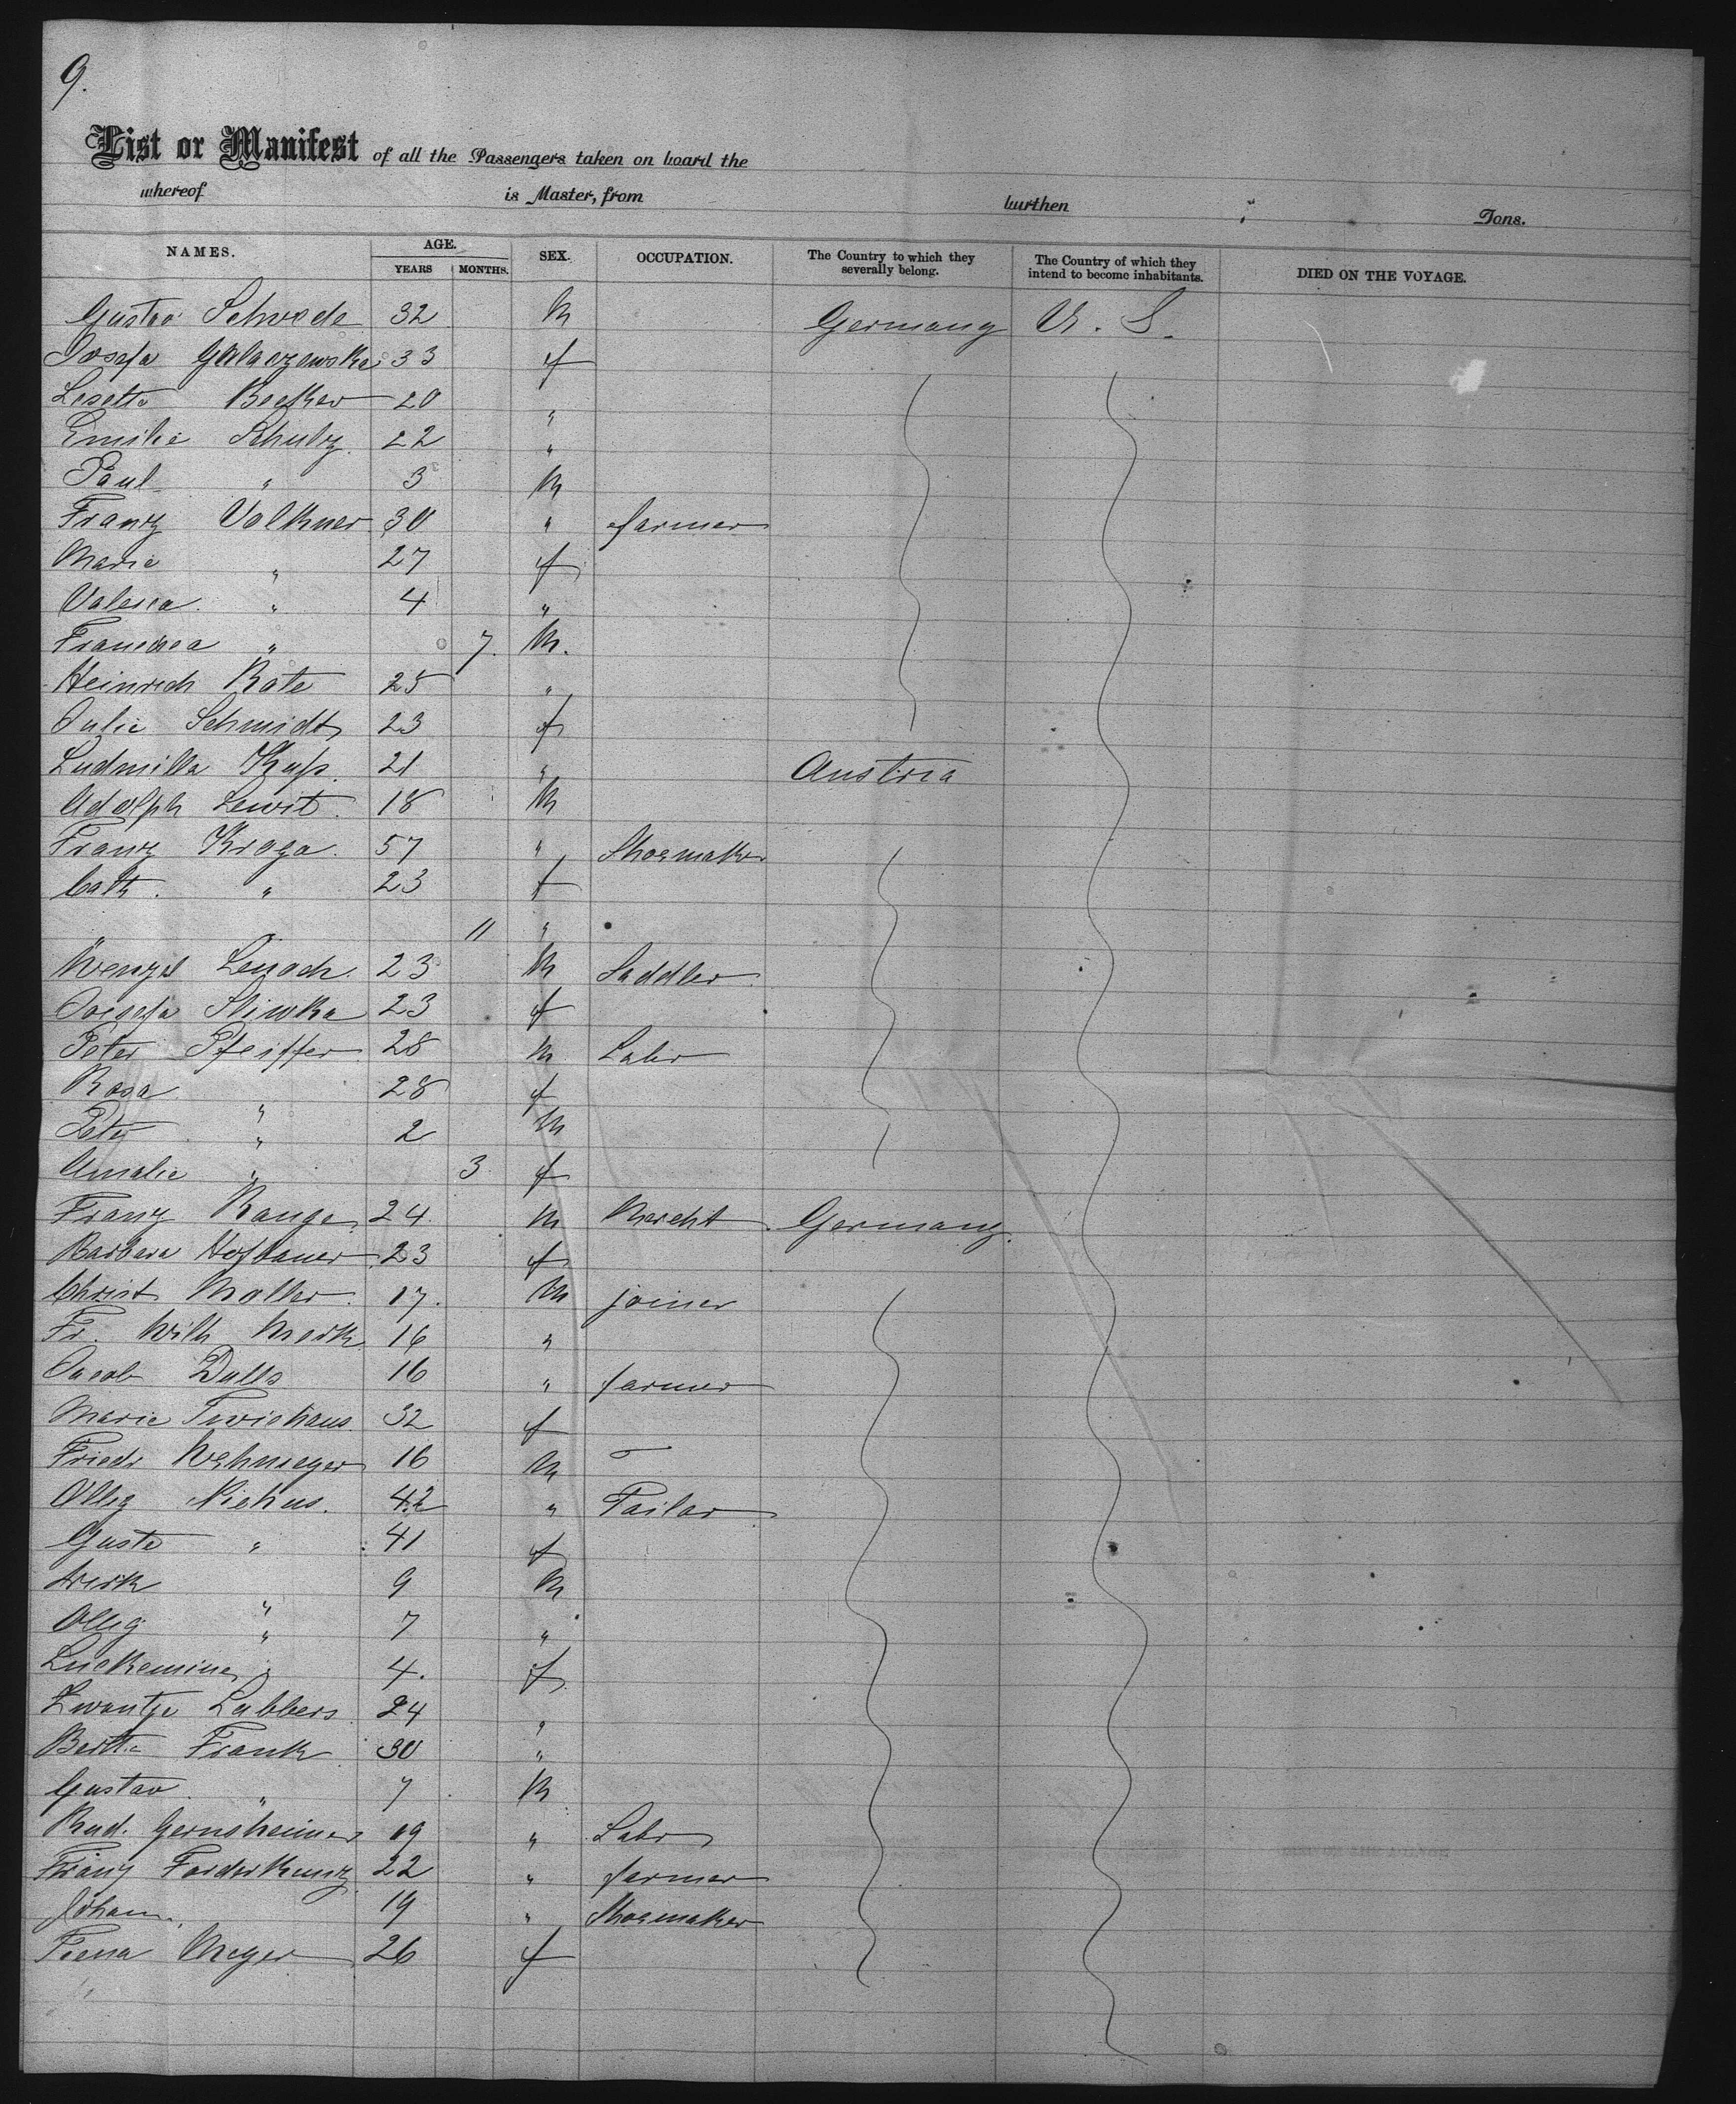 9.
List or Manifest of all the Passengers taken on board the
whereof is Master, from burthen Tons.
NAMES. AGE. YEARS MONTHS. SEX. OCCUPATION. The Country to which they severally belong. The Country of which they intend to become inhabitants. DIED ON THE VOYAGE.
Gustav Schwede 32 M Germany U. S.
Josefa 33 f
Lesette Becker 20 "
Emilie Schulz 22 "
Paul " 3 M
Franz Volkner 30 " farmer
Marie " 27 f
Valesca " 4 "
" 7. M.
Heinrich Rate 25 "
Julie Schmidt 23 f
Ludmilla 21 " Austria
Adolph Lewit 18 M
Franz Kroza 57 " Shoemaker
Cath. " 23 f
" 11 "
Wenzel 23 M Saddler
Josefa Sliwka 23 f
Peter Pfeiffer 28 M Labr
Rosa " 28 f
Peter " 2 M
Amalie " 3 f
Franz Range 24 M Knecht Germany
Barbara Hofbauer 23 f
Christ Moller 17. M joiner
Fr. Wilh Merk 16 "
Jacob Dulls 16 " farmer
Marie 32 f
Friedr Wehmeyer 16 M –
Olleg Niehus. 42 " Tailor
Guste " 41 f
" 9 M
Olleg " 7 "
" 4. f
Zwantje Lubbers 24 "
Bertha Frank 30 "
Gustav " 7 M
Rud. Gernsheimer 19 " Labr
Franz 22 " farmer
Johann " 19 " Shoemaker
Meyer 26 f